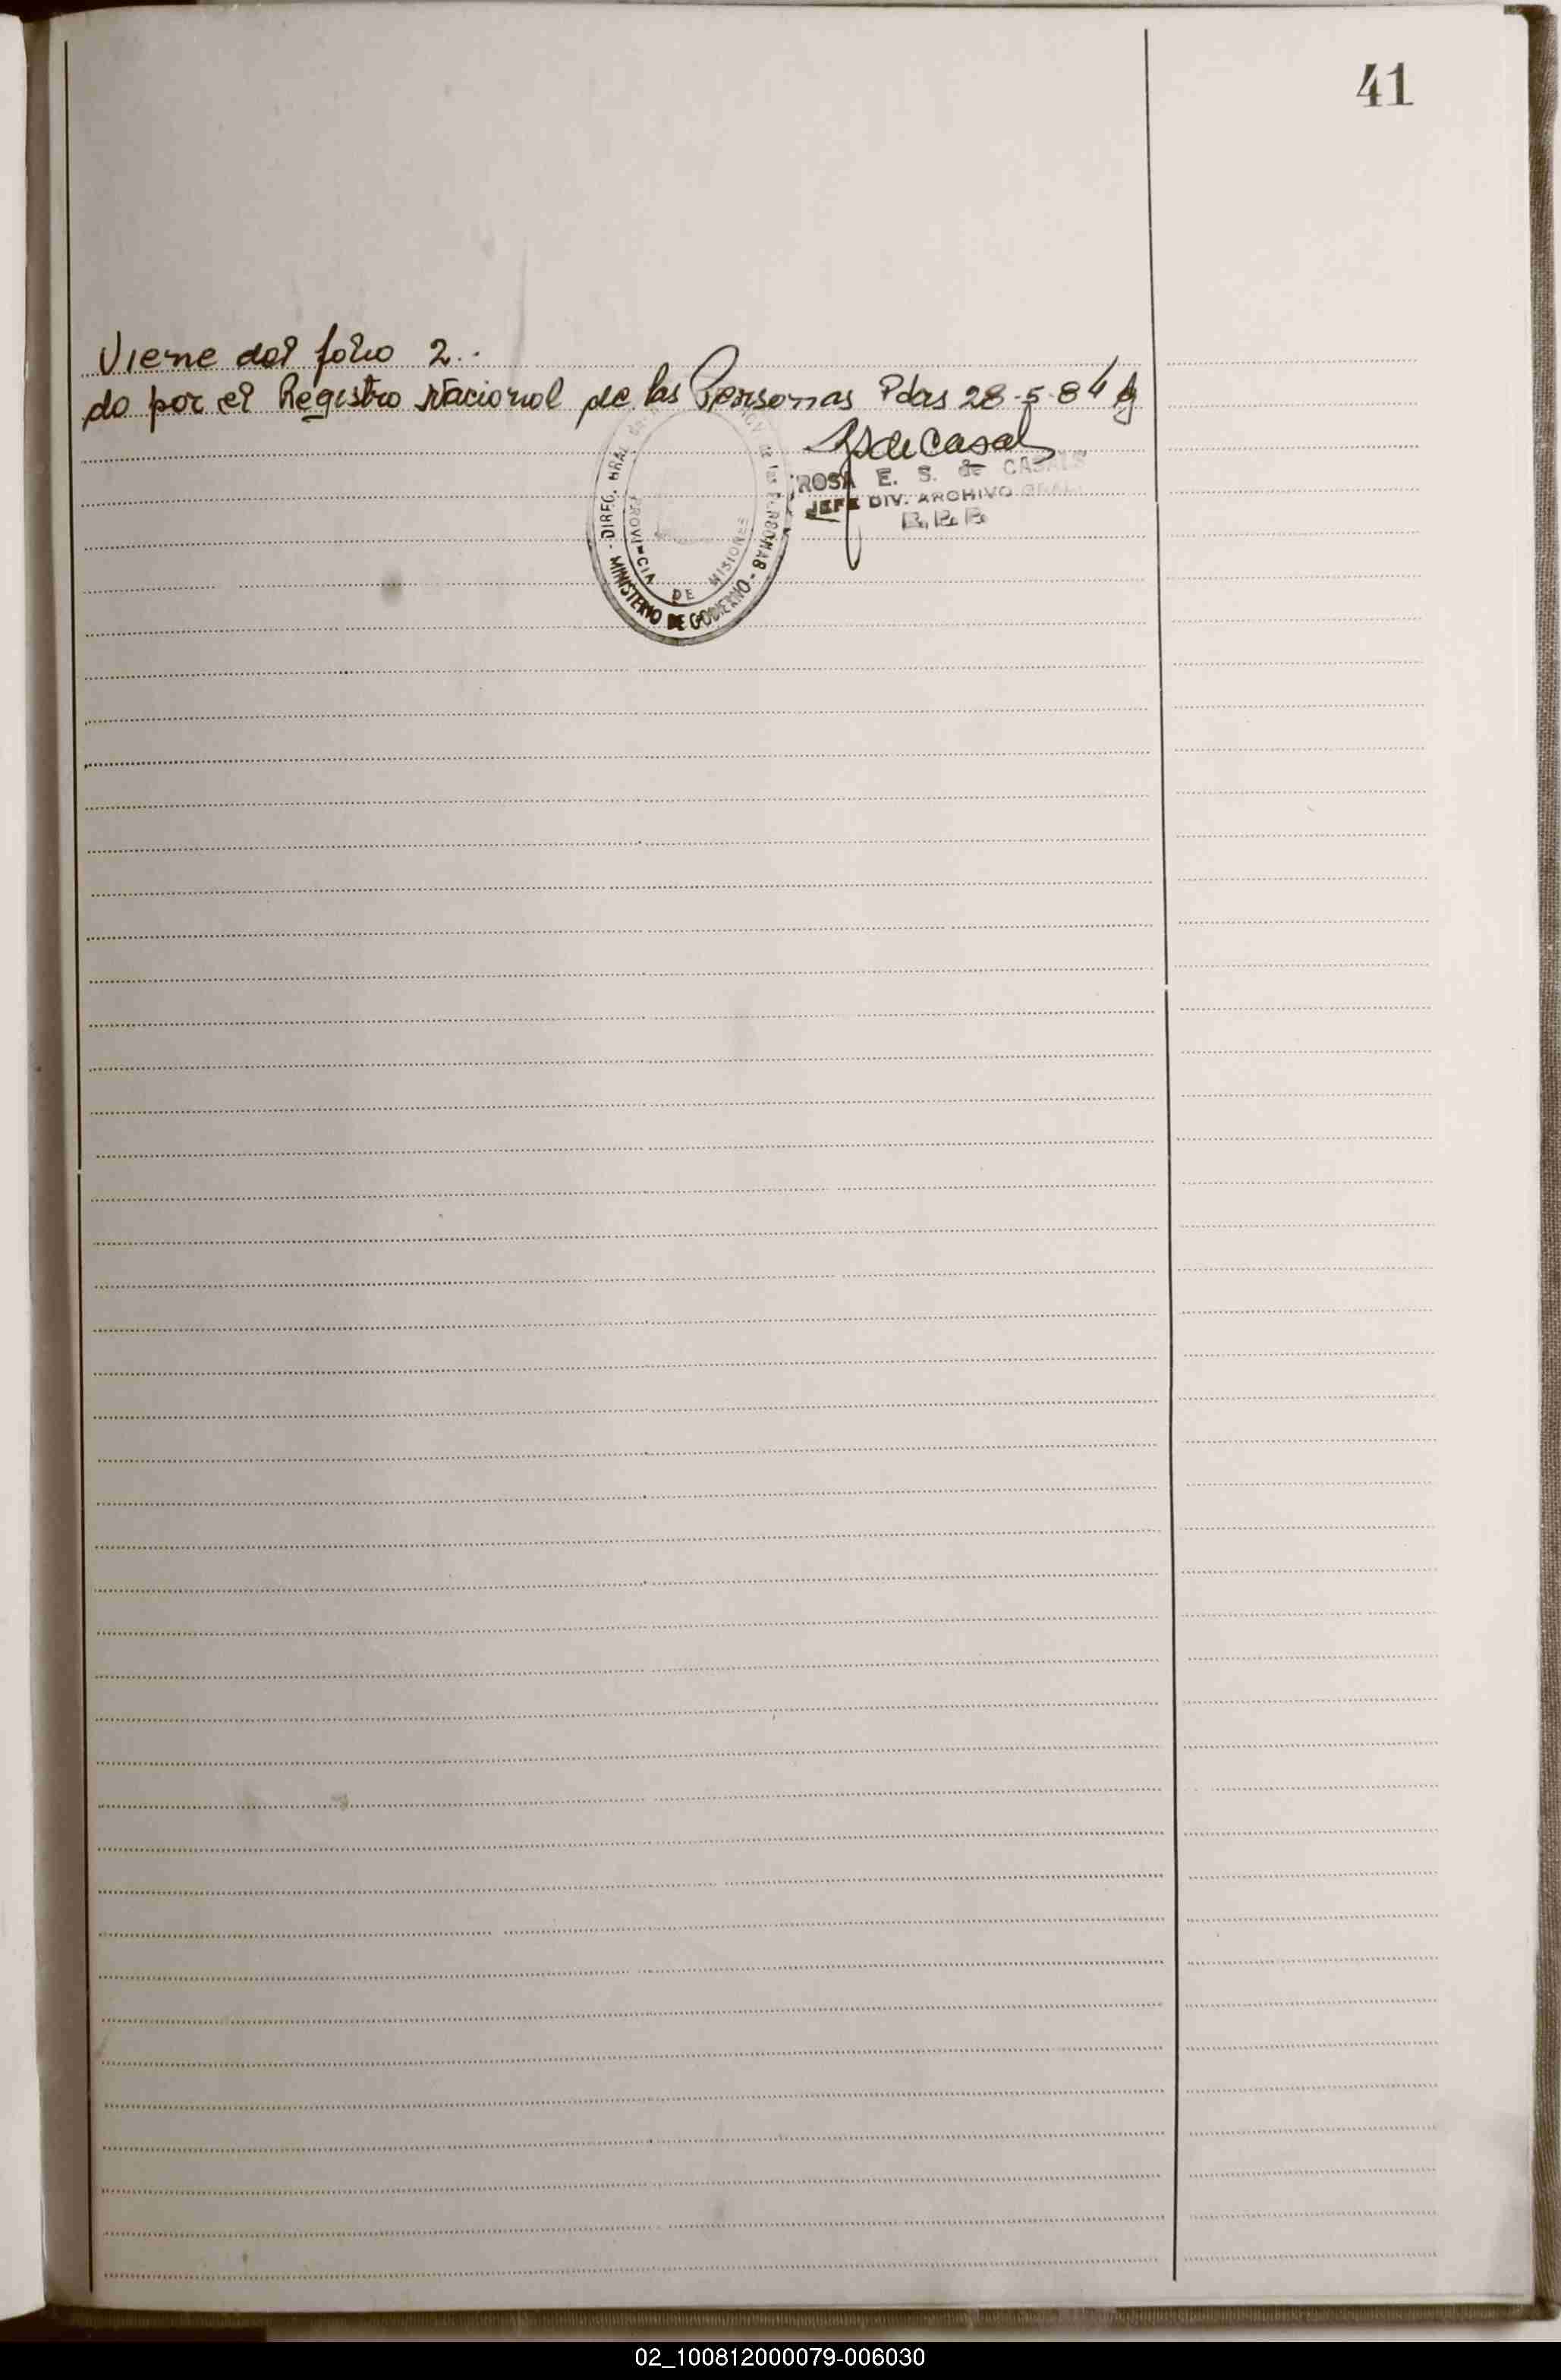 41
Viene del folio 2..
do por el Registro Nacional de las Personas Pdas 28-5-84
RSdeCasals
ROSA E. S. de CASALS
JEFE DIV. ARCHIVO GRAL.
DIREC. GRAL. de las PERSONAS - MINISTERIO DE GOBIERNO -
PROVINCIA DE MISIONES
02_100812000079-006030